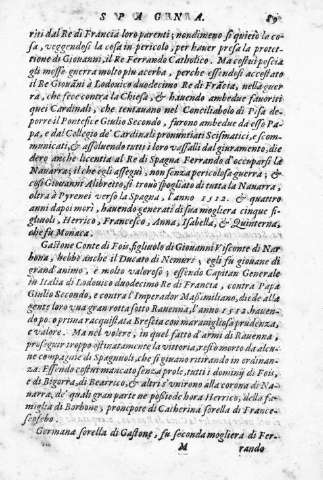 SPAGNA. 89
riti dal Re di Francia loro parenti; nondimeno si quietò la co-
sa, veggendosi la cosa in pericolo, per hauer presa la protet-
tione di Giouanni, il Re Ferrando Catholico. Ma costei poscia
gli mosse guerra molto piu acerba, perche essendosi accostato
il Re Giouãni à Lodouico duodecimo Re di Frãcia, nella guer-
ra, che fece contra la Chiesa, & hauendo ambedue fauoriti
quei Cardinali, che tentauano nel Conciliabolo di Pisa de-
porre il Pontefice Giulio Secondo, furono ambedue da esso Pa-
pa, e dal Collegio de' Cardinali pronuntiati Scismatici, e scom-
municati, & assoluendo tutti i loro vassalli dal giuramento, die
dero anche licentia al Re di Spagna Ferrando d'occuparsi la
Nauarra; il che egli asseguì, non senza pericolosa guerra; &
così Giouanni Alibreto si trouò spogliato di tutta la Nauarra,
oltra à Pyrenei verso la Spagna, l'anno 1512. & quattro
anni dapoi morì, hauendo generati di sua mogliera cinque fi-
gliuoli, Herrico, Francesco, Anna, Isabella, & Quinteria,
che fu Monaca.
Gastone Conte di Fois, figliuolo di Giouanni Visconte di Nar
bona, hebbe anche il Ducato di Nemurs; egli fu giouane di
grand'animo, e molto valoroso; essendo Capitan Generale
in Italia di Lodouico duodecimo Re di Francia, contra Papa
Giulio Secondo, e contra l'Imperador Massimiliano, diede alla
gente loro vna gran rotta sotto Rauenna, l'anno 1512. hauen-
do poco prima racquistata Brescia con marauigliosa prudenza,
e valore. Ma nel volere, in quel fatto d'armi di Rauenna,
proseguir troppo ostinatamente la vittoria, restò morto da alcu-
ne compagnie di Spagnuoli, che si giuano ritirando in ordinan-
za. Essendo costui mancato senza prole, tutti i dominij di Fois,
e di Bigorra, di Bearnico, & altri s'vnirono alla corona di Na-
uarra, de' quali gran parte ne possiede hora Herrico, della fa-
miglia di Borbone, pronepote di Catherina sorella di France-
sco Febo.
Germana sorella di Gastone, fu seconda mogliera di Fer-
M rando